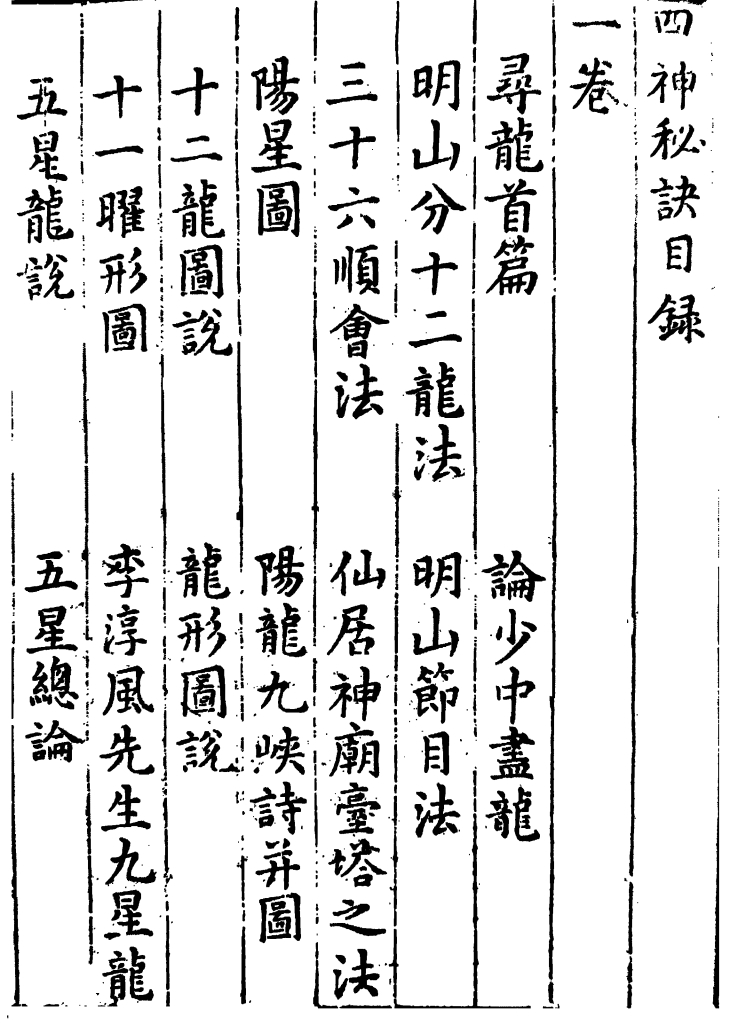 四神秘訣目録
一卷
尋龍首篇　論少中盡龍
明山分十二龍法　明山節目法
三十六順會法　仙居神廟臺塔之法
陽星圖　陽龍九峽詩并圖
十二龍圖説　龍形圖説
十一曜形圖　李淳風先生九星龍
五星龍説　五星總論